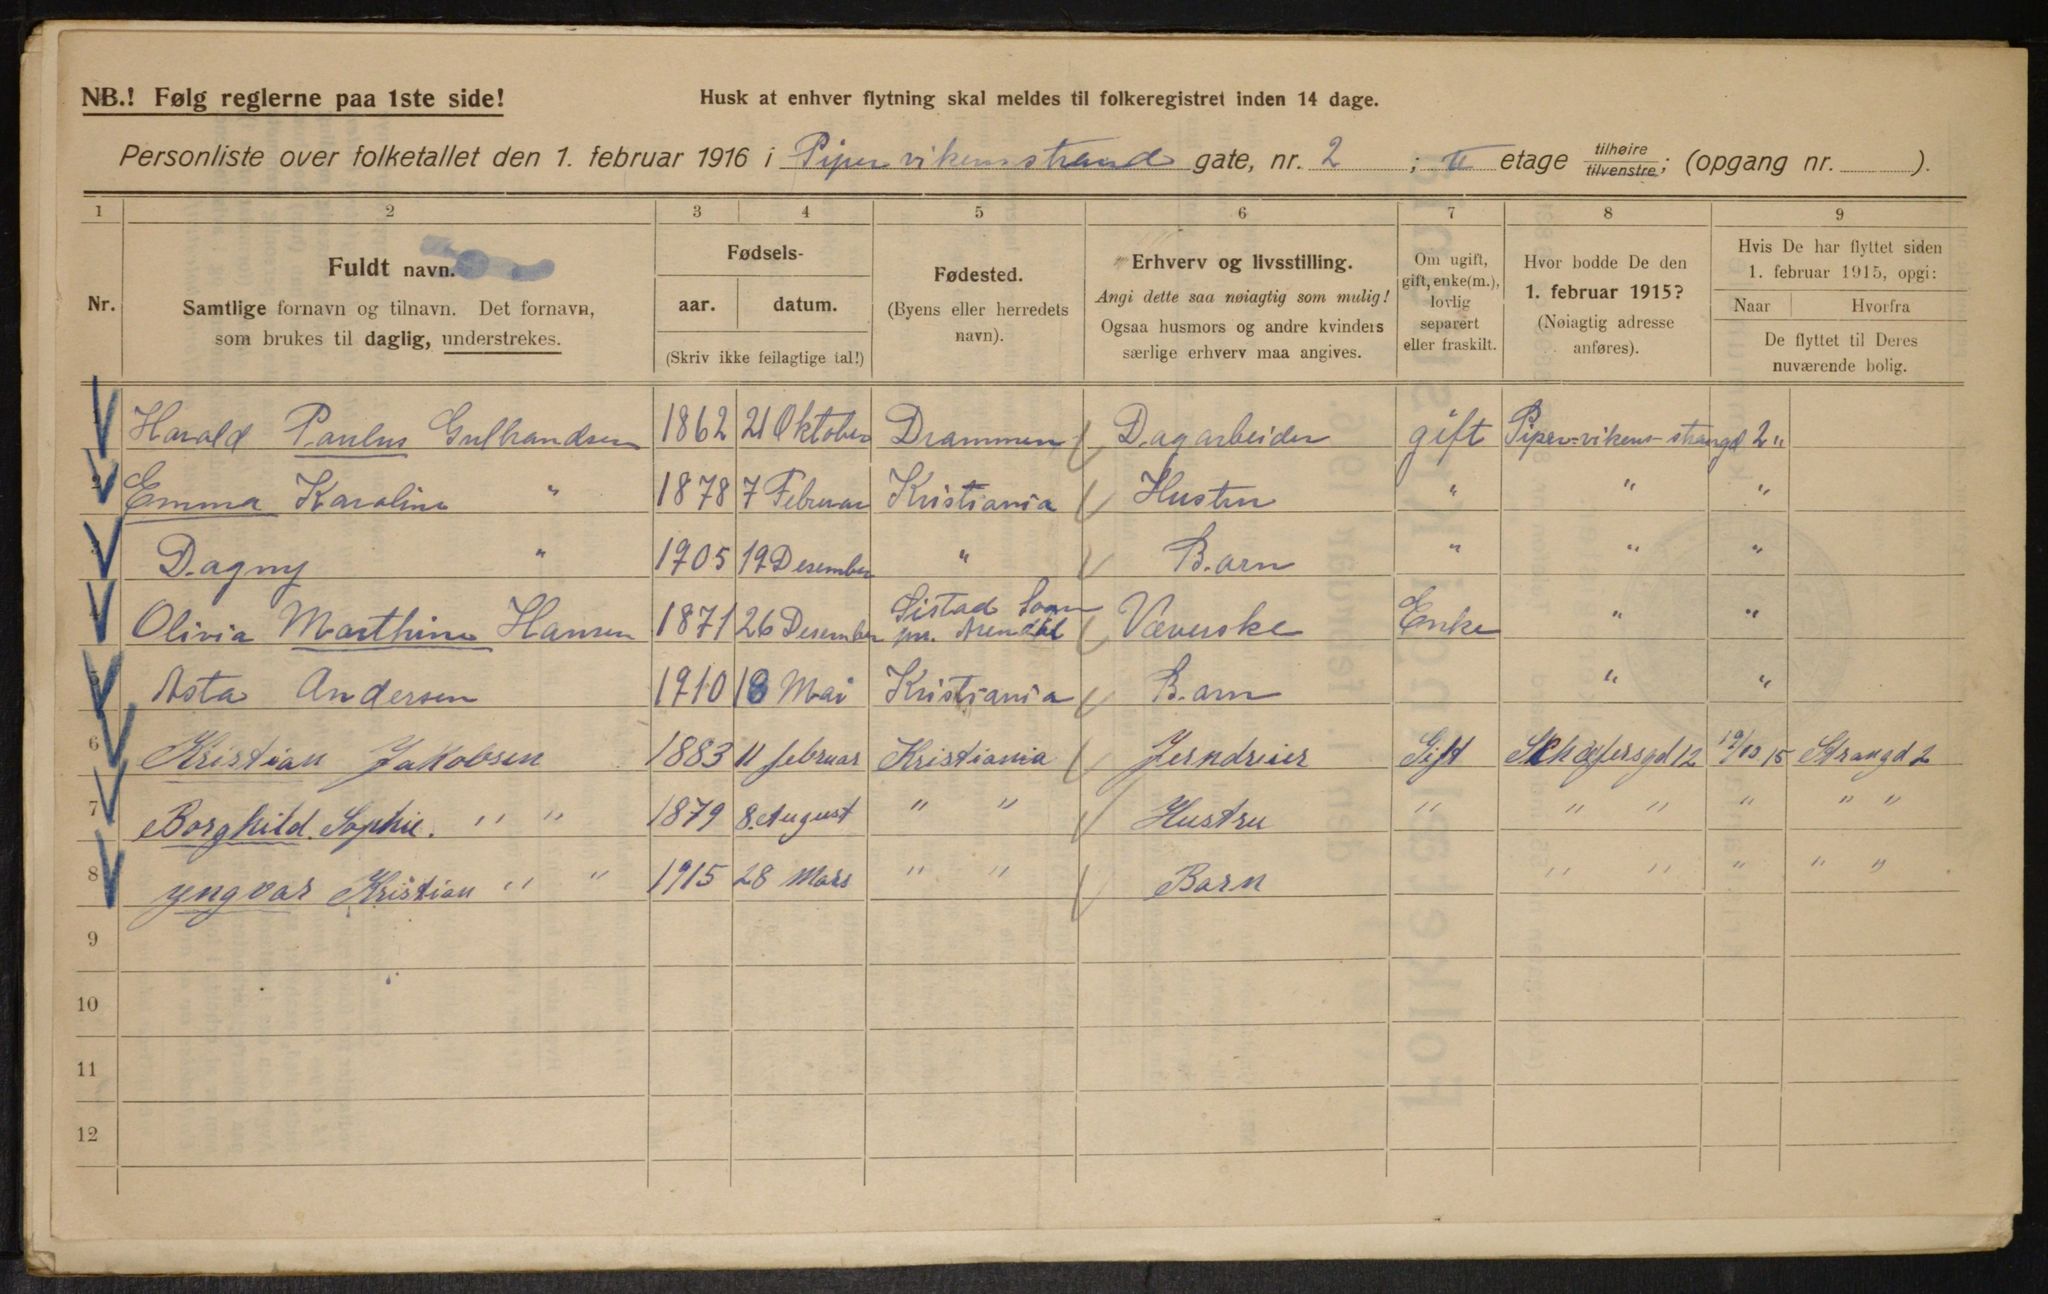 NB.! Følg reglerne paa 1ste side!
Husk at enhver flytning skal meldes til folkeregistret inden 14 dage.
Personliste over folketallet den 1. februar 1916 i Pipervikens strand gate, nr. 2 ; II etage tilhøire tilvenstre; (opgang nr. ).
1 2 3 4 5 6 7 8 9
Nr.
Fuldt navn.
Samtlige fornavn og tilnavn. Det fornavn,
som brukes til daglig, understrekes.
Fødsels-
aar. datum.
(Skriv ikke feilagtige tal!)
Fødested.
(Byens eller herredets
navn).
Erhverv og livsstilling.
Angi dette saa nøiagtig som mulig!
Ogsaa husmors og andre kvinders
særlige erhverv maa angives.
Om ugift,
gift, enke(m.),
lovlig
separert
eller fraskilt.
Hvor bodde De den
1. februar 1915?
(Nøiagtig adresse
anføres).
Hvis De har flyttet siden
1. februar 1915, opgi:
Naar Hvorfra
De flyttet til Deres
nuværende bolig.
Harald Paulus Gulbrandsen 1862 21 Oktober Drammen Dagarbeider gift Piper-vikens-strangd 2 "
Emma Karoline " 1878 7 Februar Kristiania Hustru " " "
Dagny " 1905 19 Desember " Barn " " "
Olivia Marthine Hansen 1871 26 Desember pr. Arendal Væverske Enke " "
5 Asta Andersen 1910 18 Mai Kristiania Barn " "
6 Kristian Jakobsen 1883 11 februar Kristiania Jerndreier Gift Schæfersgd 12 19/03 15 Strangd 2
7 Borghild Sophie. " " 1879 8. August " " Hustru " " " " " "
8 Yngvar Kristian " " 1915 28 Mars " " Barn " " " " "
9
10
11
12